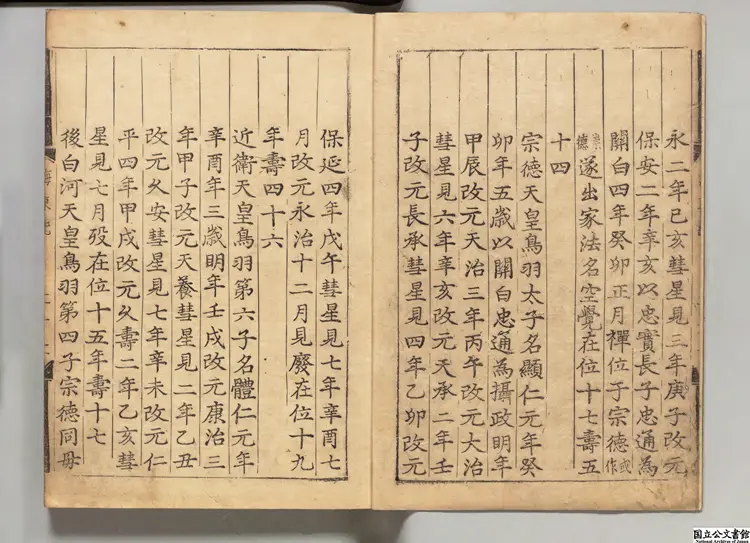 永二年己亥彗星見三年庚子改元
保安二年辛亥以忠實長子忠通為
關白四年癸卯正月禪位于宗德或作
崇德遂出家法名空覺在位十七壽五
十四
宗德天皇鳥羽太子名顯仁元年癸
卯年五歲以關白忠通為攝政明年
甲辰改元天治三年丙午改元大治
彗星見六年辛亥改元天承二年壬
子改元長承彗星見四年乙卯改元
保延四年戊午彗星見七年辛酉七
月改元永治十二月見廢在位十九
年壽四十六
近衛天皇鳥羽第六子名體仁元年
辛酉年三歲明年壬戌改元康治三
年甲子改元天養彗星見二年乙丑
改元久安彗星見七年辛未改元仁
平四年甲戌改元久壽二年乙亥彗
星見七月歿在位十五年壽十七
後白河天皇鳥羽第四子宗德同母
国立公文書館
National Archives of Japan